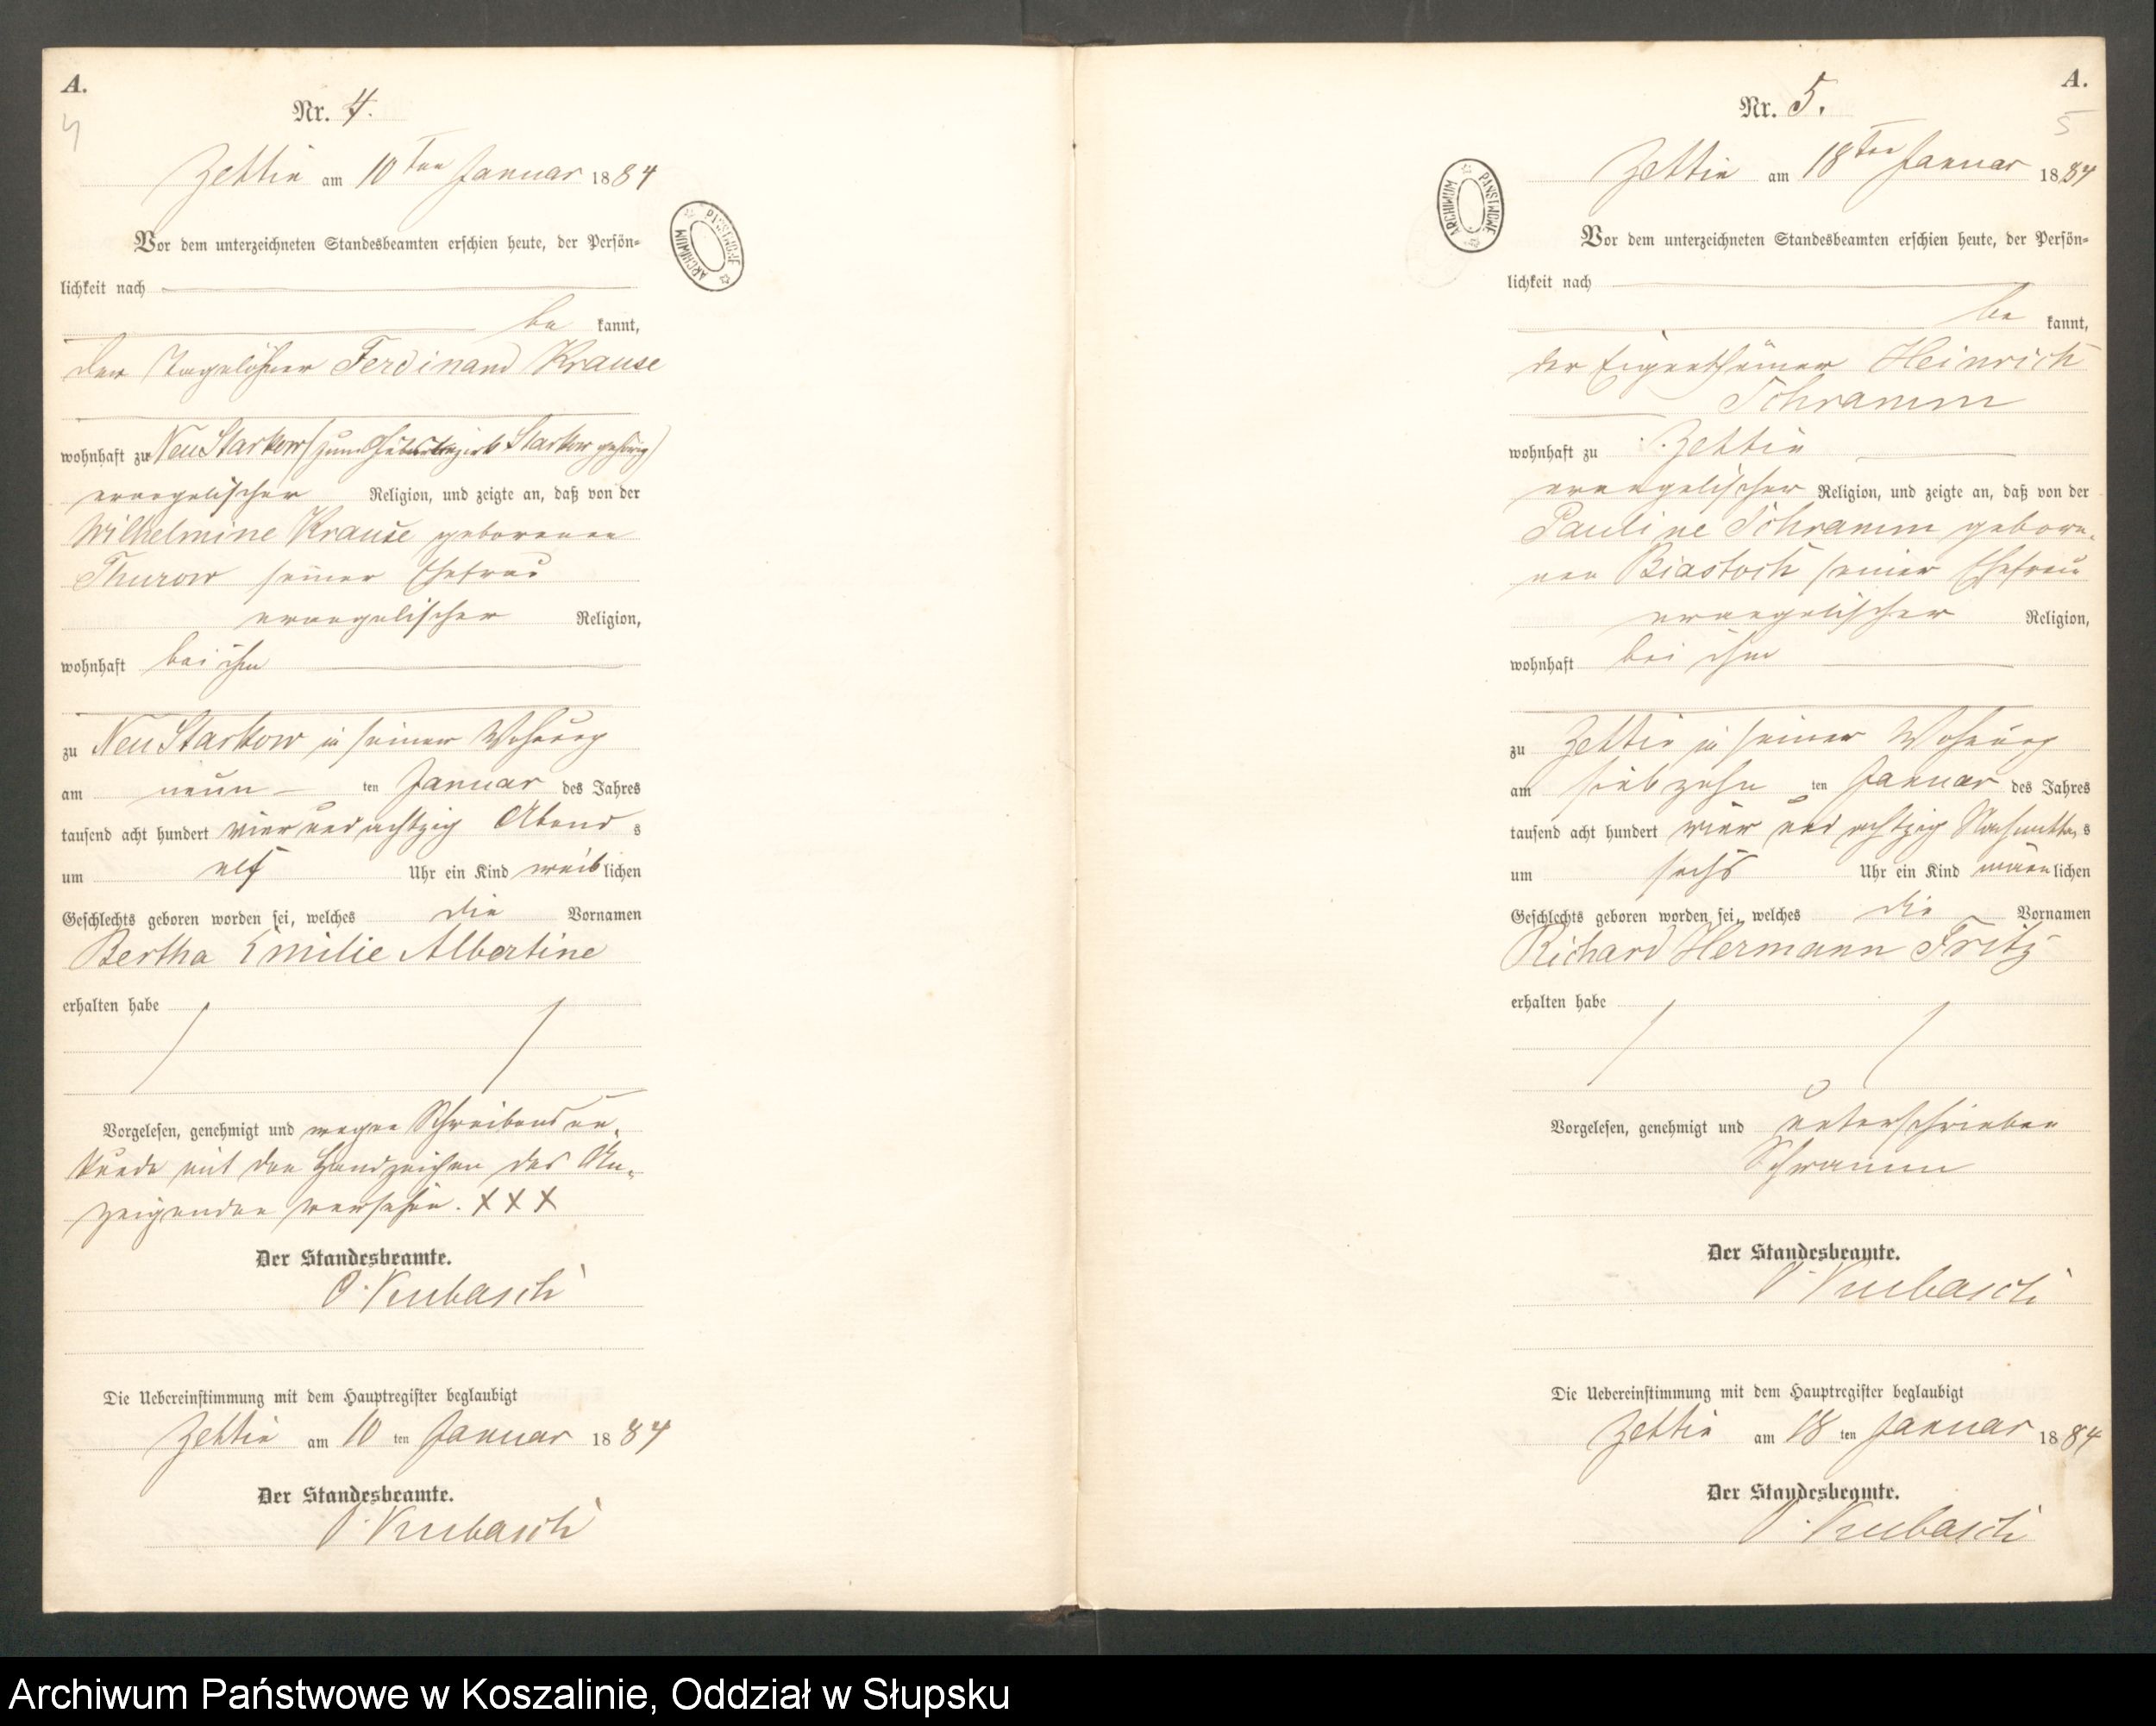 A.
4
Nr. 4.
Zettin am 10ten Januar 1884
ARCHIWUM PAŃSTWOWE
Vor dem unterzeichneten Standesbeamten erschien heute, der Persön-
lichkeit nach
be kannt,
der Tagelöhner Ferdinand Krause
wohnhaft zu Neu Starkow (zum Gutsbezirk Starkow gehörig)
evangelischer Religion, und zeigte an, daß von der
Wilhelmine Krause geborenen
Thurow seiner Ehefrau
evangelischer Religion,
wohnhaft bei ihm
zu Neu Starkow in seiner Wohnung
am neun ten Januar des Jahres
tausend acht hundert vier und achtzig Abend s
um elf Uhr ein Kind weib lichen
Geschlechts geboren worden sei, welches die Vornamen
Bertha Emilie Albertine
erhalten habe
Vorgelesen, genehmigt und wegen Schreibensun-
kunde mit den Handzeichen des An-
zeigenden versehen. XXX
Der Standesbeamte.
Kubasch
Die Uebereinstimmung mit dem Hauptregister beglaubigt
Zettin am 10 ten Januar 1884
Der Standesbeamte.
Kubasch
A.
5
Nr. 5.
Zettin am 18ten Januar 1884
ARCHIWUM PAŃSTWOWE
Vor dem unterzeichneten Standesbeamten erschien heute, der Persön-
lichkeit nach
be kannt,
der Eigenthümer Heinrich
Schramm
wohnhaft zu Zettin
evangelischer Religion, und zeigte an, daß von der
Pauline Schramm gebore-
nen Biastoch seiner Ehefrau
evangelischer Religion,
wohnhaft bei ihm
zu Zettin in seiner Wohnung
am siebzehn ten Januar des Jahres
tausend acht hundert vier und achtzig Nachmittag s
um sechs Uhr ein Kind männ lichen
Geschlechts geboren worden sei, welches die Vornamen
Richard Hermann Fritz
erhalten habe
Vorgelesen, genehmigt und unterschrieben
Schramm
Der Standesbeamte.
Kubasch
Die Uebereinstimmung mit dem Hauptregister beglaubigt
Zettin am 18 ten Januar 1884
Der Standesbeamte.
Kubasch
Archiwum Państwowe w Koszalinie, Oddział w Słupsku